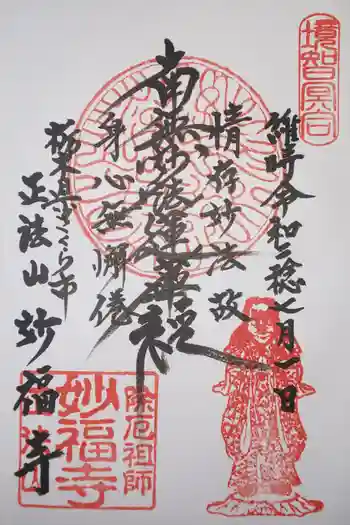 境智冥合
維時令和二稔七月一日
情存妙法故
南無妙法蓮華経
身心無懈倦
栃木県さくら市
正法山妙福寺
除厄祖師
妙福寺